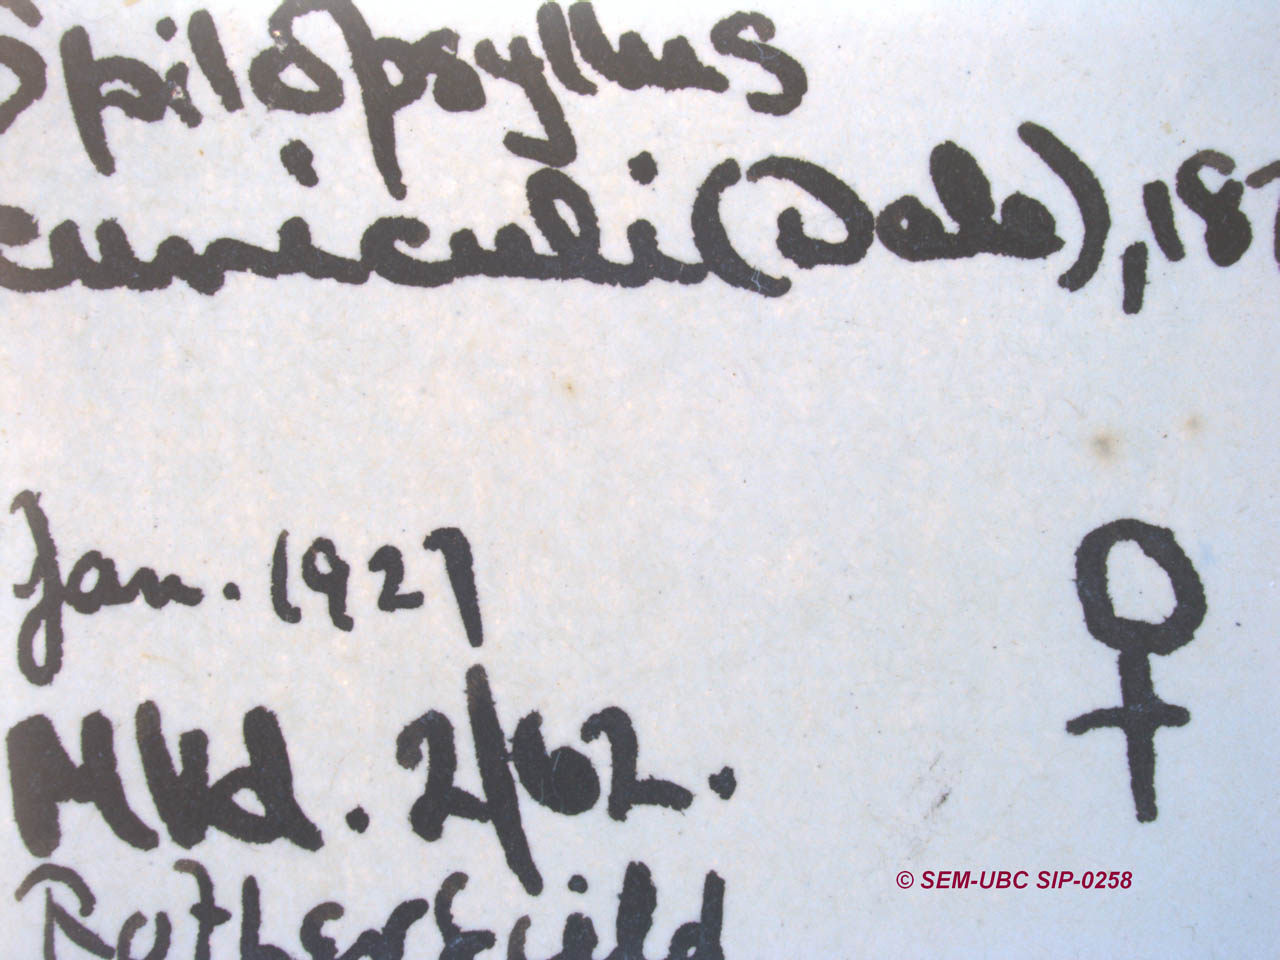 Spilopsyllus
cuniculi (Dale), 187
Jan. 1927
♀
Mtd. 2/62.
Rothschild
© SEM-UBC SIP-0258